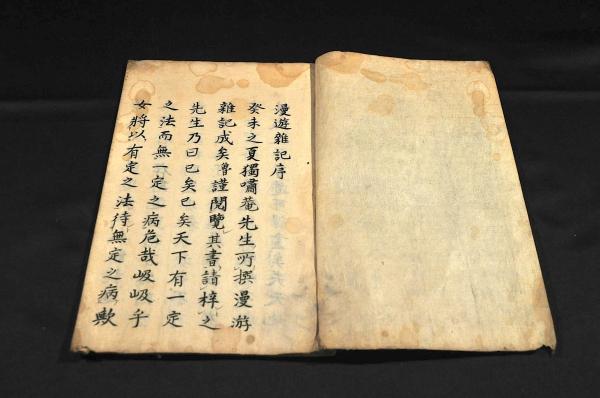 漫遊雜記序
癸未之夏獨嘯菴先生所撰漫游
雜記成矣魯謹閱覽其書請梓之
先生乃曰已矣已矣天下有一定
之法而無一定之病危哉岌岌乎
女將以有定之法待無定之病歟